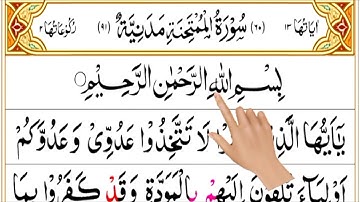 اٰيَاتُهَا ١٣ (٦٠) سُوْرَةُ الْمُمْتَحِنَةِ مَدَنِيَّةٌ (٩١) رُكُوْعَاتُهَا ٢
بِسْمِ اللّٰهِ الرَّحْمٰنِ الرَّحِيْمِ
يٰۤاَيُّهَا لَا تَتَّخِذُوْا عَدُوِّىْ وَعَدُوَّكُمْ
اَوْلِيَآءَ تُلْقُوْنَ اِلَيْهِمْ بِالْمَوَدَّةِ وَقَدْ كَفَرُوْا بِمَا